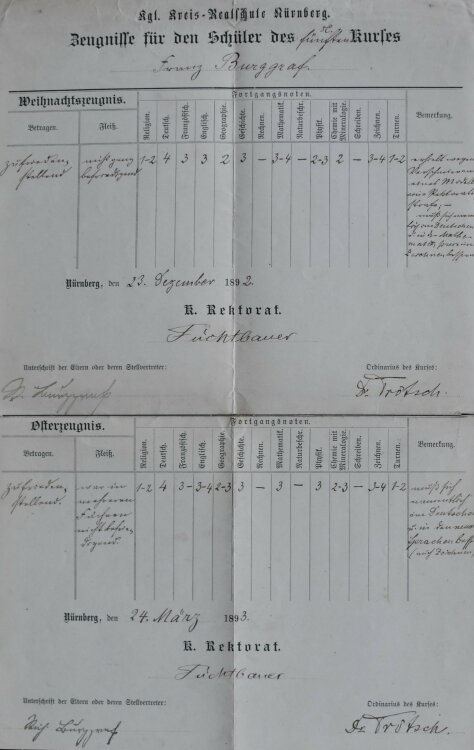 Kgl. Kreis-Realschule Nürnberg.
Zeugnisse für den Schüler des fünften Kurses
Franz Burggraf
Weihnachtszeugnis.
Fortgangsnoten.
Betragen. Fleiß. Religion. Deutsch. Französisch. Englisch. Geographie. Geschichte. Rechnen. Mathematik. Naturbeschr. Physik. Chemie mit Mineralogie. Schreiben. Zeichnen. Turnen. Bemerkung.
zufrieden- nicht ganz 1-2 4 3 3 2 3 — 3-4 — 2-3 2 — 3-4 1-2 erhielt wegen
stellend befriedigend
eines Modells
muß sich
im Deutschen
u. in der Mathe-
Zeichnen bessern
Nürnberg, den 23. Dezember 1892.
K. Rektorat.
Füchtbauer
Unterschrift der Eltern oder deren Stellvertreter: Ordinarius des Kurses:
Burggraf Dr. Trötsch.
Osterzeugnis.
Fortgangsnoten.
Betragen. Fleiß. Religion. Deutsch. Französisch. Englisch. Geographie. Geschichte. Rechnen. Mathematik. Naturbeschr. Physik. Chemie mit Mineralogie. Schreiben. Zeichnen. Turnen. Bemerkung.
zufrieden- war in 1-2 4 3 3-4 2-3 3 — 3 — 3 2-3 — 3-4 1-2 muß sich
stellend. mehreren namentlich
Fächern im Deutschen
nicht befrie- u. in den neuen
digend. Sprachen
Nürnberg, den 24. März 1893.
K. Rektorat.
Füchtbauer
Unterschrift der Eltern oder deren Stellvertreter: Ordinarius des Kurses:
Burggraf Dr. Trötsch.